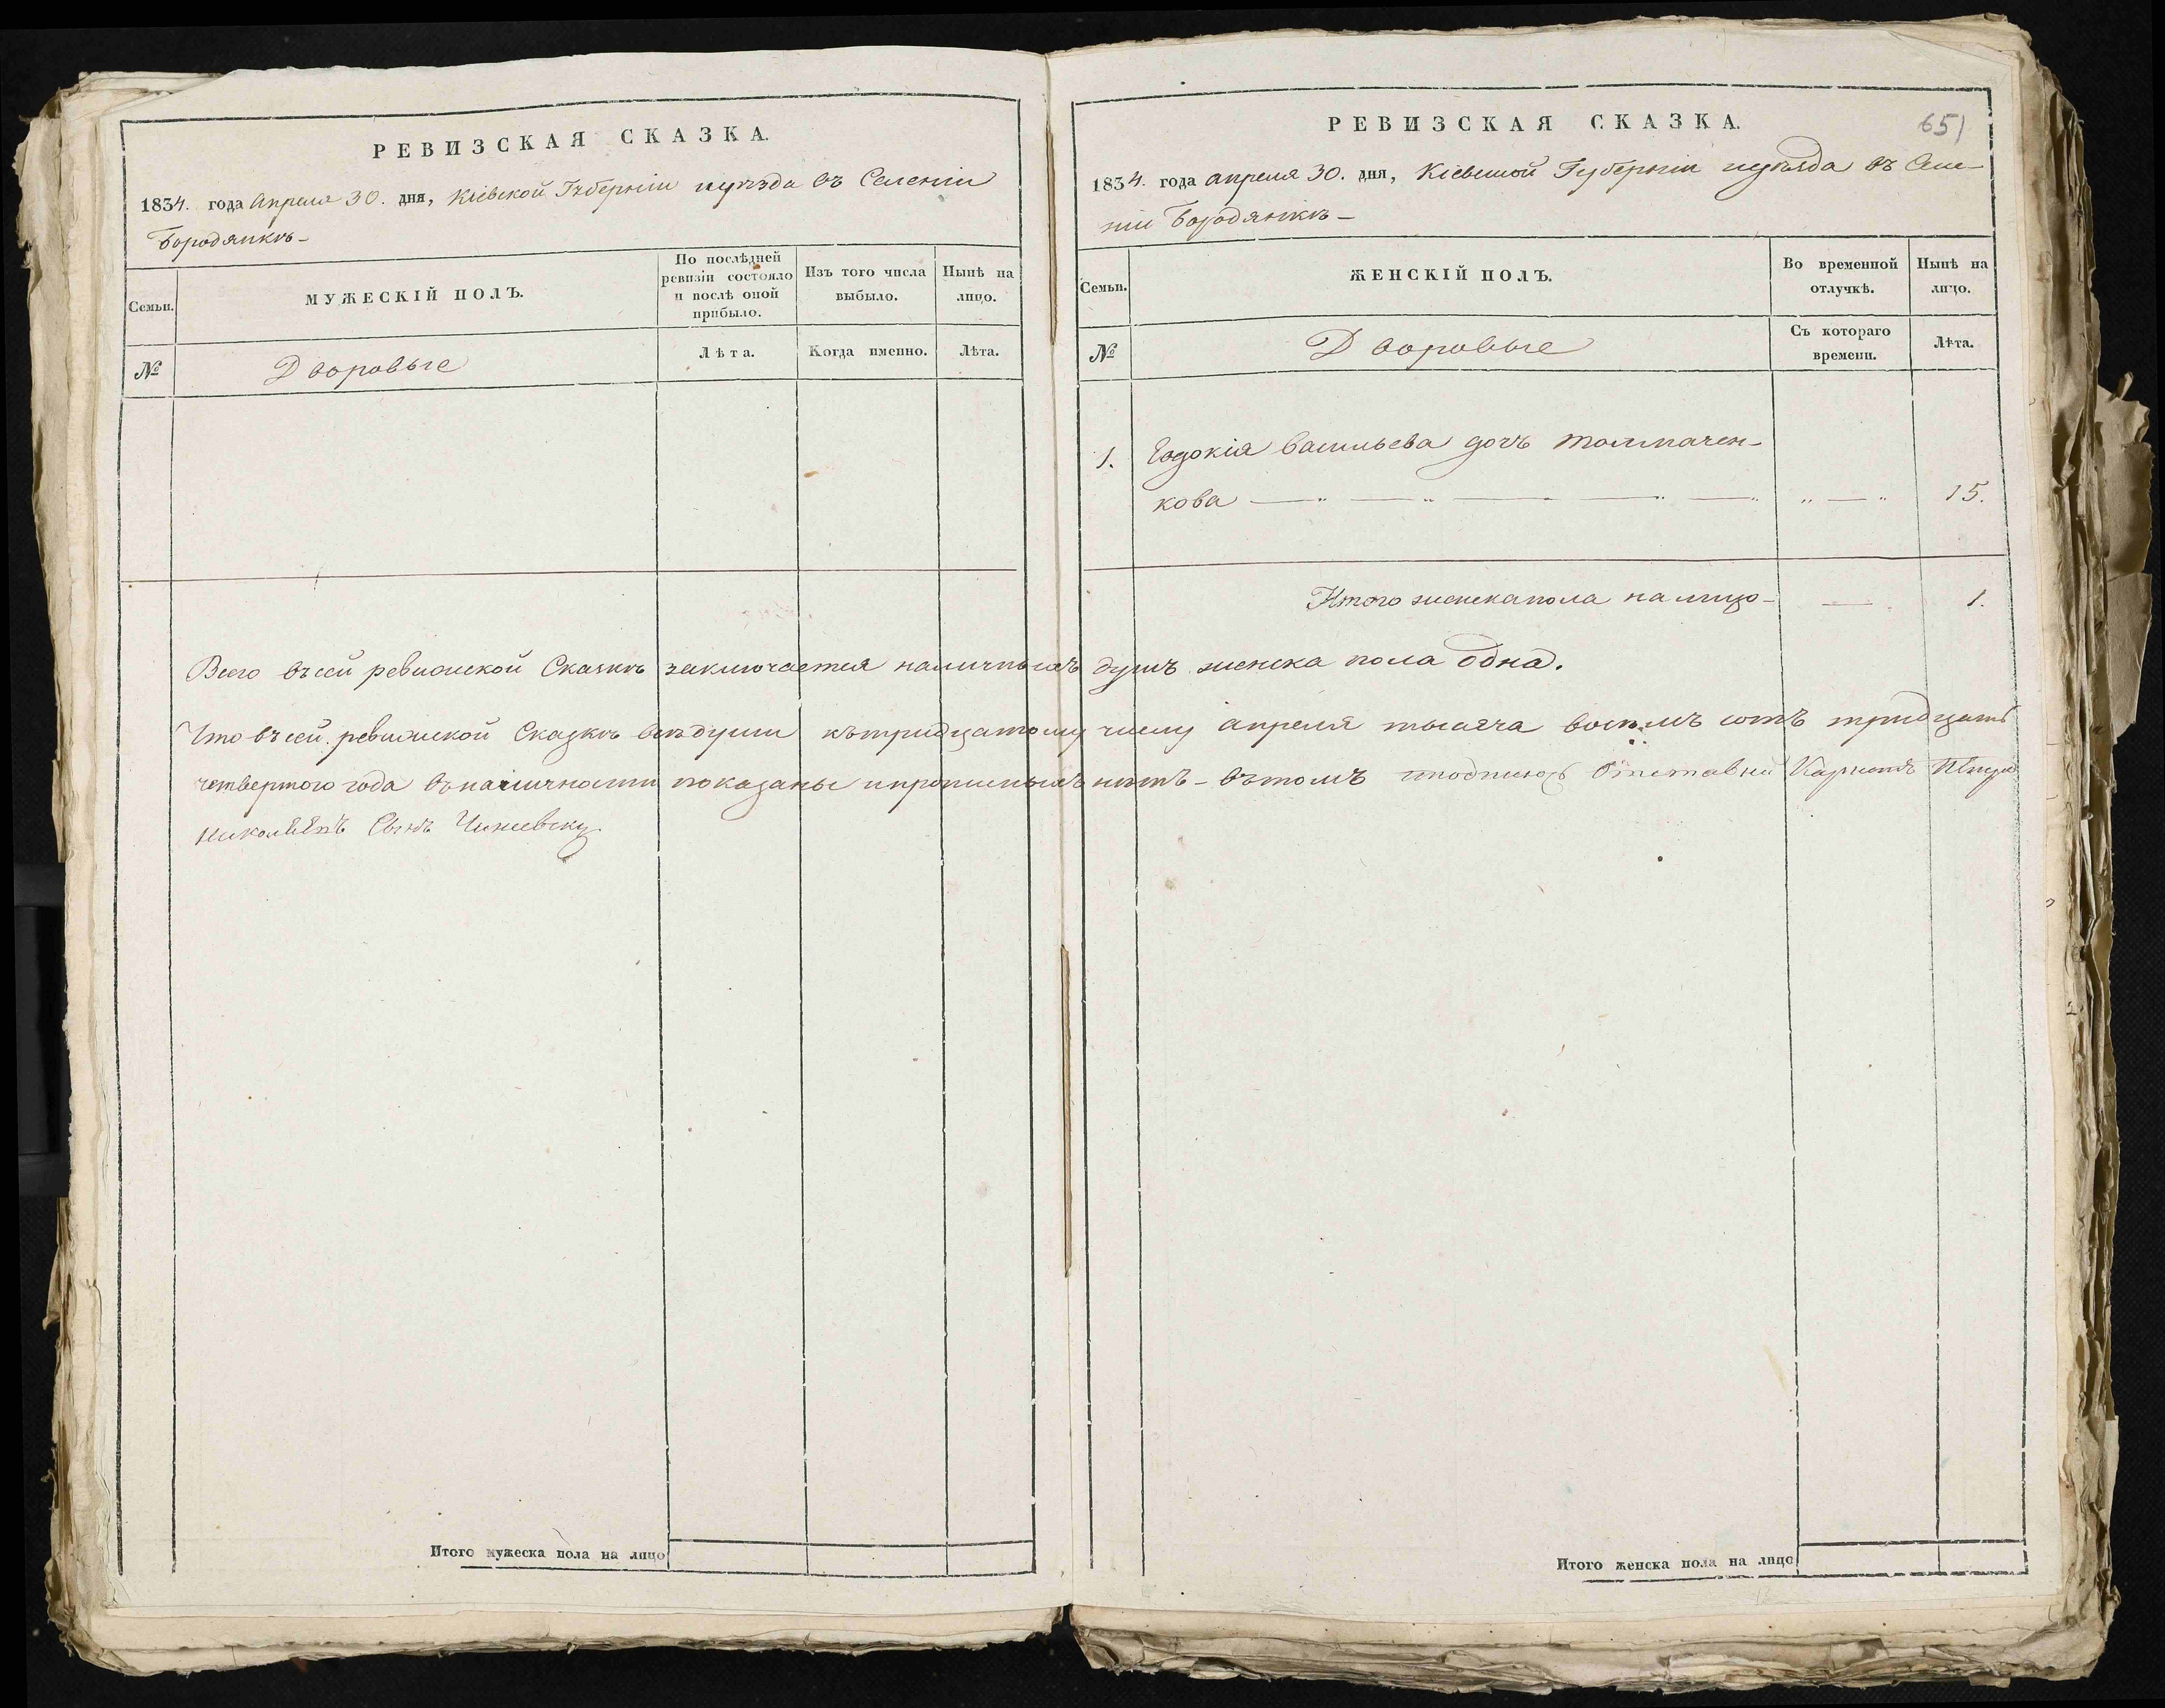 РЕВИЗСКАЯ СКАЗКА.
1834. года Апреля 30. дня, Кіевской Губерніи иуѣзда въ Селеніи
Бородянкѣ-
Семьи.
МУЖЕСКІЙ ПОЛЪ.
По послѣдней
ревизіи состояло
и послѣ оной
прибыло.
Изъ того числа
выбыло.
Нынѣ на
лицо.
№
Дворовые
Лѣта.
Когда именно.
Лѣта.
Итого мужеска пола на лицо
РЕВИЗСКАЯ СКАЗКА.
651
1834. года апреля 30. дня, Кіевской Губерніи иуѣзда въ Селе-
ніи Бородянкѣ-
Семьи.
ЖЕНСКІЙ ПОЛЪ.
Во временной
отлучкѣ.
Нынѣ на
лицо.
№
Дворовые
Съ котораго
времени.
Лѣта.
1. Евдокія Васильева дочь Толмачен-
кова 15.
Итого женскапола налицо- 1.
Всего въсей ревизской Сказкѣ заключается наличныхъ душъ женска пола Одна.
Что въсей ревизской Сказкѣ всѣдуши кътридцатому числу апреля тысяча восѣмъ сотъ тридцать
четвертого года вѣналичности показаны ипрописныхъ нѣтъ - вътомъ
Сынъ
Итого женска пола на лицо